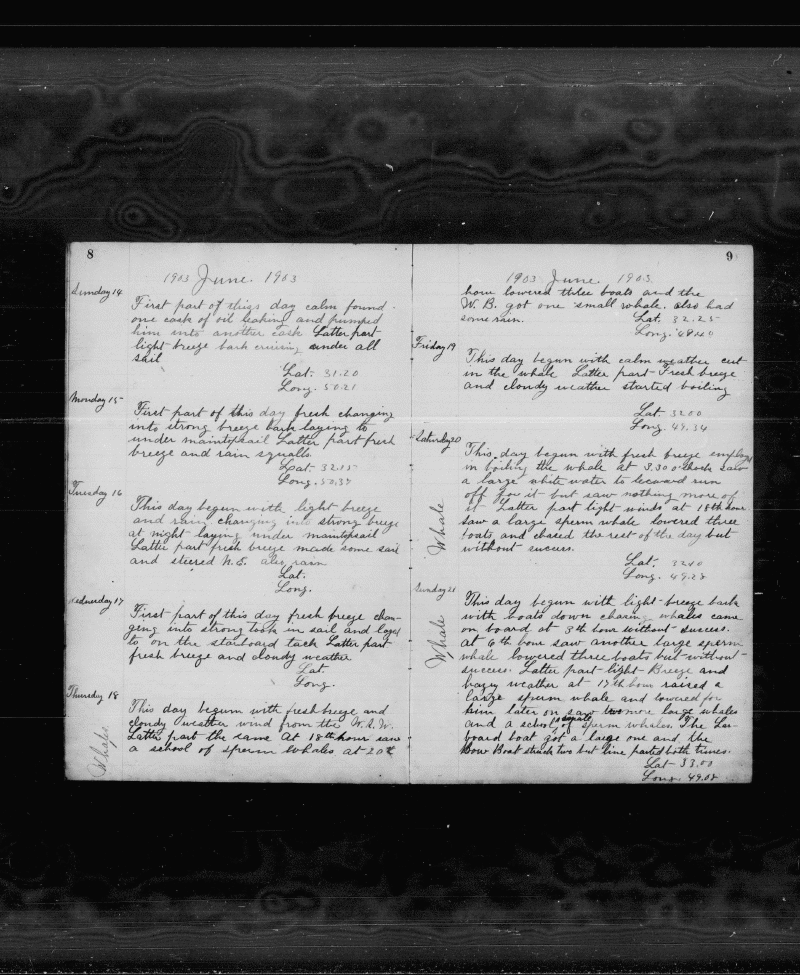 8
1903 June. 1903
Sunday 14
First part of this day calm found
one cask of oil leaking and pumped
him into another cask Latter part
light breeze bark cruising under all
sail
Lat. 31.20
Long. 50.21
Monday 15
First part of this day fresh changing
into strong breeze bark laying to
under maintopsail Latter part fresh
breeze and rain squalls.
Lat. 32.15
Long. 50.37
Tuesday 16
This day begun with light breeze
and rain changing into strong breeze
at night laying under maintopsail
Latter part fresh breeze made some sail
and steered N.E. also rain
Lat.
Long.
Wednesday 17
First part of this day fresh breeze chan-
ging into strong took in sail and layed
to on the starboard tack Latter part
fresh breeze and cloudy weather
Lat
Long.
Thursday 18
Whales
This day begun with fresh breeze and
cloudy weather wind from the W.S.W.
Latter part the same At 18th hour saw
a school of sperm whales at 20th
9
1903 June. 1903.
hour lowered three boats and the
W.B. got one small whale. also had
some rain. Lat. 32.25
Long. 48.40
Friday 19
This day begun with calm weather cut
in the whale Latter part Fresh breeze
and cloudy weather started boiling
Lat 32.00
Long. 49.34
Saturday 20
Whale
This day begun with fresh breeze employed
in boiling the whale at 3.30 oclock saw
a large white water to leeward run
off for it but saw nothing more of
it Latter part light winds at 18th hour
saw a large sperm whale lowered three
boats and chased the rest of the day but
without success.
Lat. 32.40
Long. 49.28
Sunday 21
Whale
This day begun with light breeze bark
with boats down chasing whales came
on board at 3th hour without success.
At 6th hour saw another large sperm
whale lowered three boats but without
success. Latter part light Breeze and
hazy weather at 17th hour raised a
large sperm whale and lowered for
him later on saw two more large whales
and a school of small sperm whales. The Lar-
board boat got a large one and the
Bow Boat struck two but line parted both times.
Lat 33.00
Long. 49.08